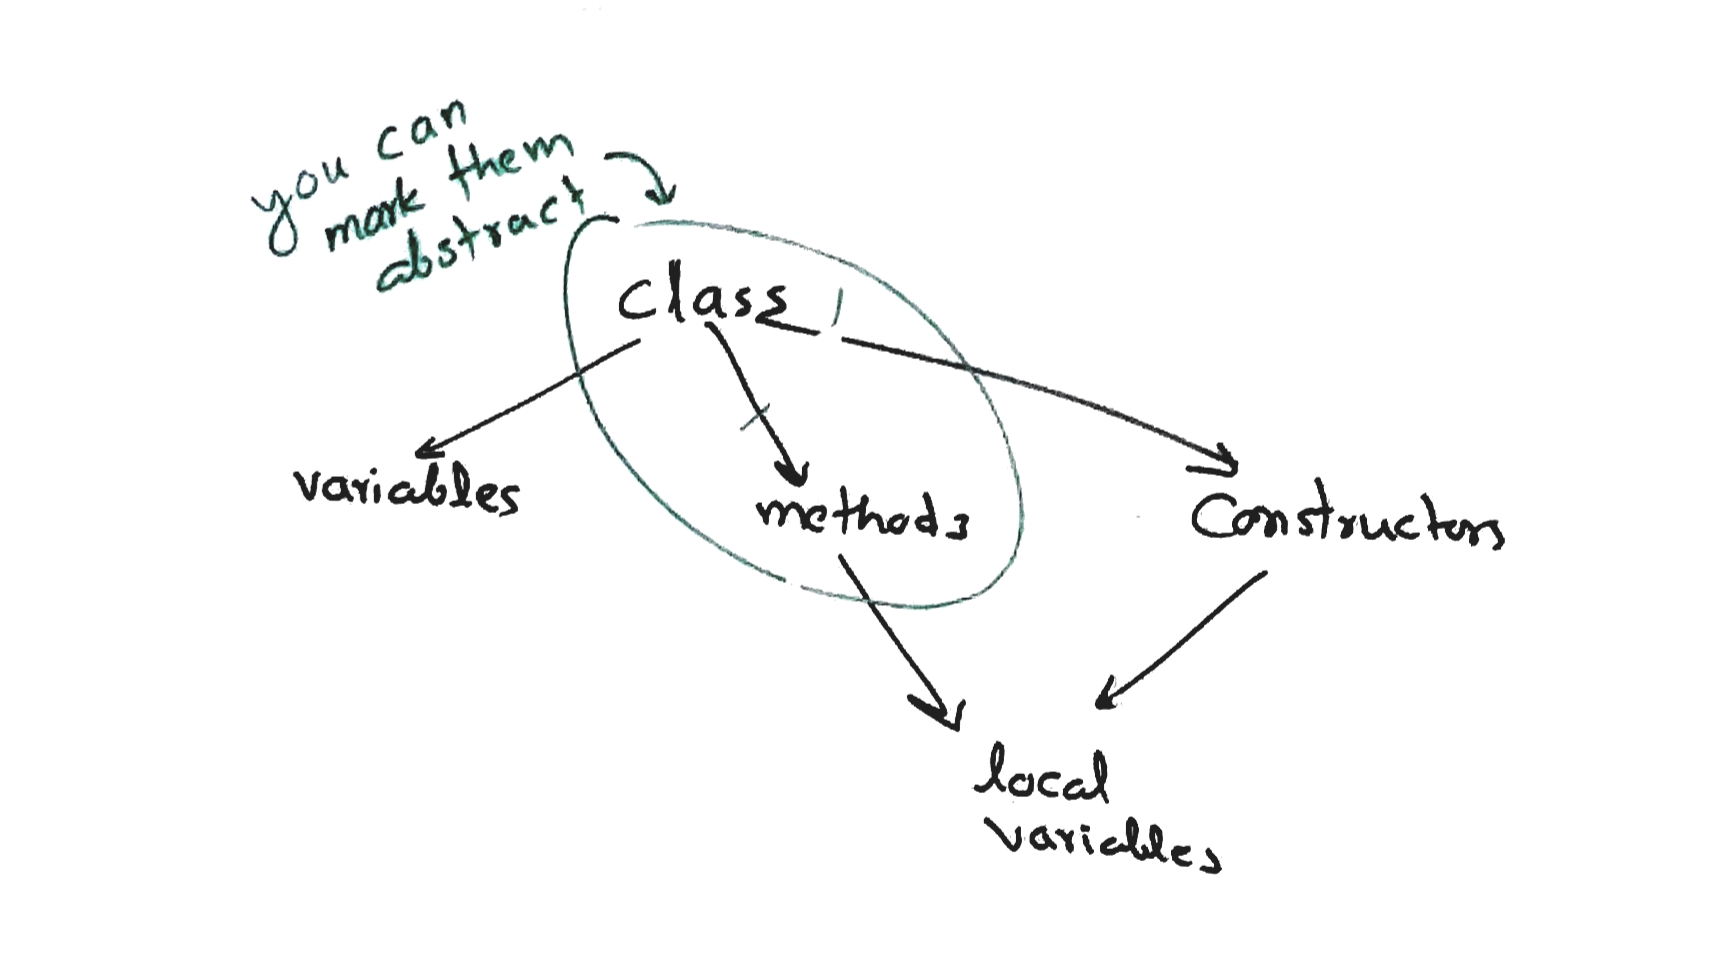 you can
mark them
abstract
Class
variables
methods
Constructors
local
variables